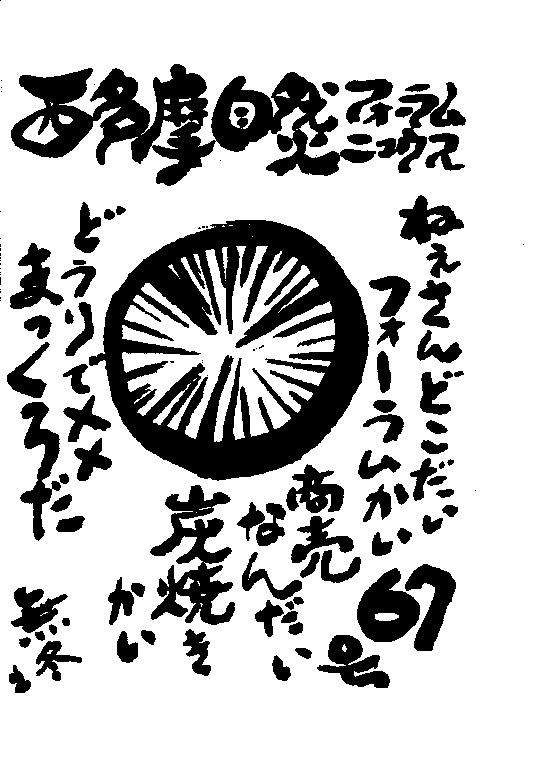 西多摩自然フォーラム
ニュウス
ねえさんどこだい
フォーラムかい
商売
なんだい
炭焼き
かい
どうりでメメ
まっくろだ
67号
無冬